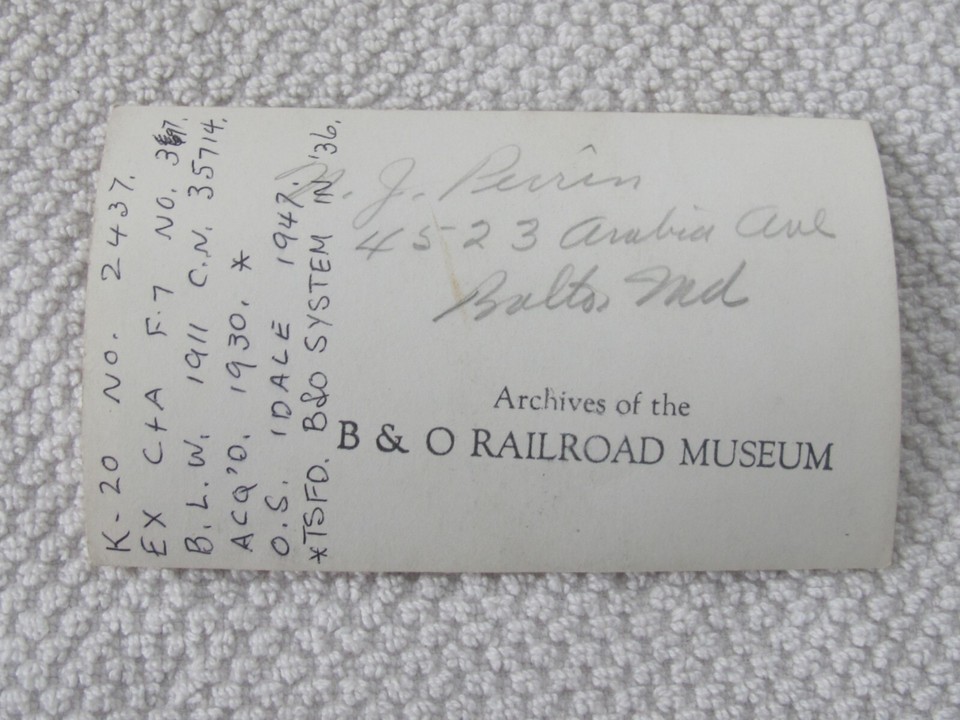 K-20 NO. 2437.
EX C+A F-7 NO. 397.
B.L.W. 1911 C.N. 35714.
ACQ'D. 1930. *
O.S. IDALE 1947.
*TSFD. B&O SYSTEM IN '36.
J. Perrin
4523 Arabia Ave
Balto, Md
Archives of the
B & O RAILROAD MUSEUM